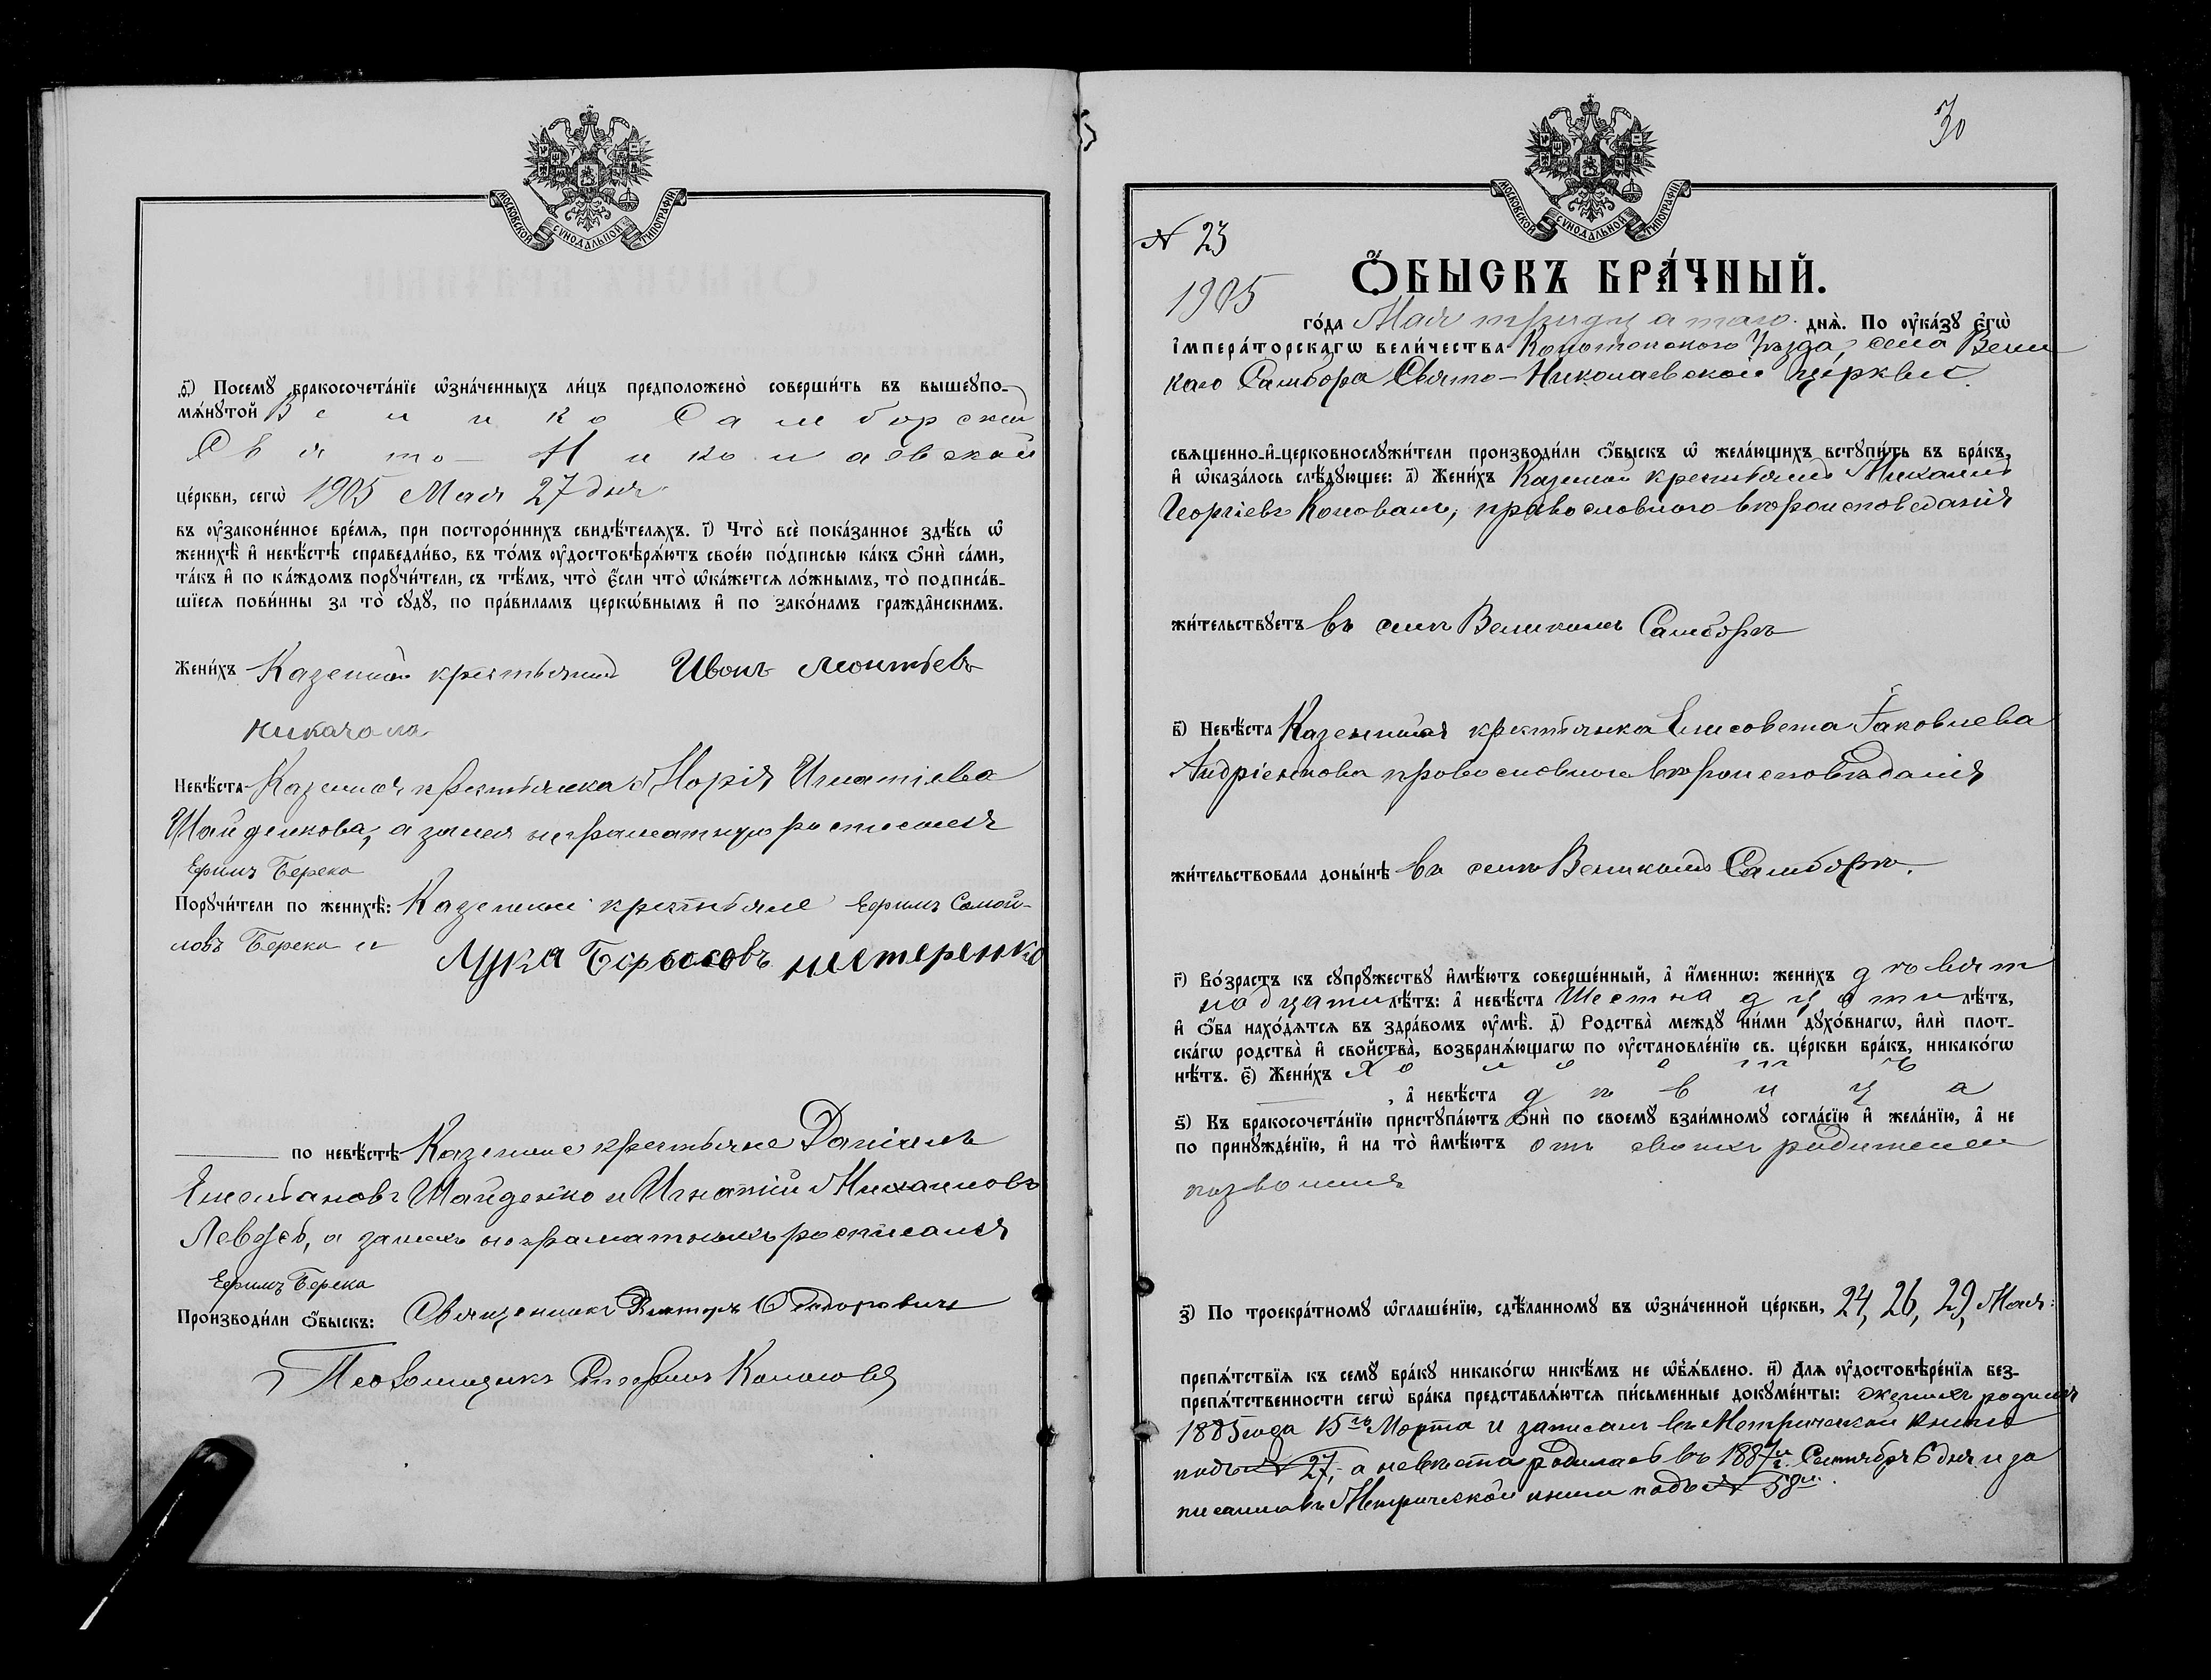 МОСКОВСКОЙ СѴНОДАЛЬНОЙ ТИПОГРАФІИ
ѳ҃) Посемꙋ̀ бракосочета́нїе ѡ҆зна́ченныхъ ли́цъ предположено̀ соверши́ть въ вышеупо-
мѧ́нꙋтой Велико Самборской
Свято-Николаевской
це́ркви, сегѡ̀ 1905 Мая 27 дня
въ ᲂу҆законе́нное вре́мѧ, при посторо́ннихъ свидѣ́телѧхъ. і҃) Что̀ всѐ пока́занное здѣ́сь ѡ҆
женихѣ̀ и҆ невѣ́стѣ справедли́во, въ то́мъ ᲂу҆достовѣрѧ́ютъ свое́ю по́дписью ка́къ ѻ҆нѝ са́ми,
та́къ и҆ по ка́ждомъ порꙋчи́тели, съ тѣ́мъ, что̀ є҆́сли что̀ ѡ҆ка́жетсѧ ло́жнымъ, то̀ подписа́в-
шїесѧ пови́нны за то̀ сꙋдꙋ̀, по пра́виламъ церкѡ́внымъ и҆ по зако́намъ гражда̂нскимъ.
Жени́хъ Казенный крестьянинъ Иванъ Леонтьевъ
Никачала
Невѣ́ста Казенная крестьянка Марія Игнатіева
Шайденкова, а за нея неграматную росписался
Ефимъ Берека
Порꙋчи́тели по женихѣ̀: Казенные крестьяне Ефимъ Самой-
ловъ Берека и Лука Борысовъ нестеренко
по невѣ́стѣ Казенные крестьяне Даніилъ
Емельановъ Шайденко и Игнатій Михаиловъ
а за нихъ неграматныхъ росписался
Ефимъ Берека
Производи́ли ѻ҆́быскъ: Священникъ Викторъ Ѳедоровичъ
Псаломщикъ
30
МОСКОВСКОЙ СѴНОДАЛЬНОЙ ТИПОГРАФІИ
№ 23
Ѻ҆́БЫСКЪ БРА́ЧНЫЙ.
1905
го́да Мая тридцатаго днѧ̀. По ᲂу҆ка́зꙋ є҆гѡ̀
і҆мпера́торскагѡ вели́чества Конотопского Уѣзда, села Вели
каго Самбора Свято-Николаевской церкви
свѧщенно-и҆-церковнослꙋжи́тели производи́ли ѻ҆́быскъ ѡ҆ жела́ющихъ встꙋпи́ть въ бра́къ,
и҆ ѡ҆каза́лось слѣ́дꙋющее: а҃) Жени́хъ Казенный крестьянинъ Михаилъ
Георгіевъ Коновалъ, православного вѣроисповеданія
жи́тельствꙋетъ въ селѣ Великомъ Самборѣ
в҃) Невѣ́ста Казенная крестьянка Елисовета Іаковлева
Андріенкова православного вѣроисповѣданія
жи́тельствовала доны́нѣ въ селѣ Великомъ Самборѣ.
г҃) Во́зрастъ къ сꙋпрꙋ́жествꙋ и҆мѣ́ютъ соверше́нный, а҆ и҆́меннѡ: жени́хъ девят
надцати лѣ́тъ: а҆ невѣ́ста Шестнадцати лѣ́тъ,
и҆ ѻ҆́ба нахо́дѧтсѧ въ здра́вомъ ᲂу҆мѣ̀. д҃) Родства̀ междꙋ̀ ни́ми дꙋхо́внагѡ, и҆лѝ плот-
ска́гѡ родства̀ и҆ сво́йства̀, возбранѧ́ющагѡ по ᲂу҆становле́нїю св. це́ркви бра́къ, никако́гѡ
нѣ́тъ. є҃) Жени́хъ Холостъ
, а҆ невѣ́ста дѣвица
ѕ҃) Къ бракосочета́нїю пристꙋпа́ютъ ѻ҆нѝ по своемꙋ̀ взаи́мномꙋ согла́сїю и҆ жела́нїю, а҆ не
по принꙋжде́нїю, и҆ на то̀ и҆мѣ́ютъ отъ своихъ родителей
позволенія
з҃) По троекра́тномꙋ ѡ҆глаше́нїю, сдѣ́ланномꙋ въ ѡ҆зна́ченной це́ркви, 24, 26, 29, Мая:
препѧ́тствїѧ къ семꙋ̀ бра́кꙋ никако́гѡ никѣ́мъ не ѡ҆б̾ѧ́влено. и҃) Длѧ ᲂу҆достовѣре́нїѧ без-
препѧ́тственности сегѡ̀ бра́ка представлѧ́ютсѧ пи́сьменные докꙋме́нты: женихъ родился
1885 года 15го Марта и записанъ въ Метрической книгѣ
подъ № 27, а невѣста родилась въ 1887м г. Сентября 6 дня и за
писанна въ Метрической книги подъ № 58м.